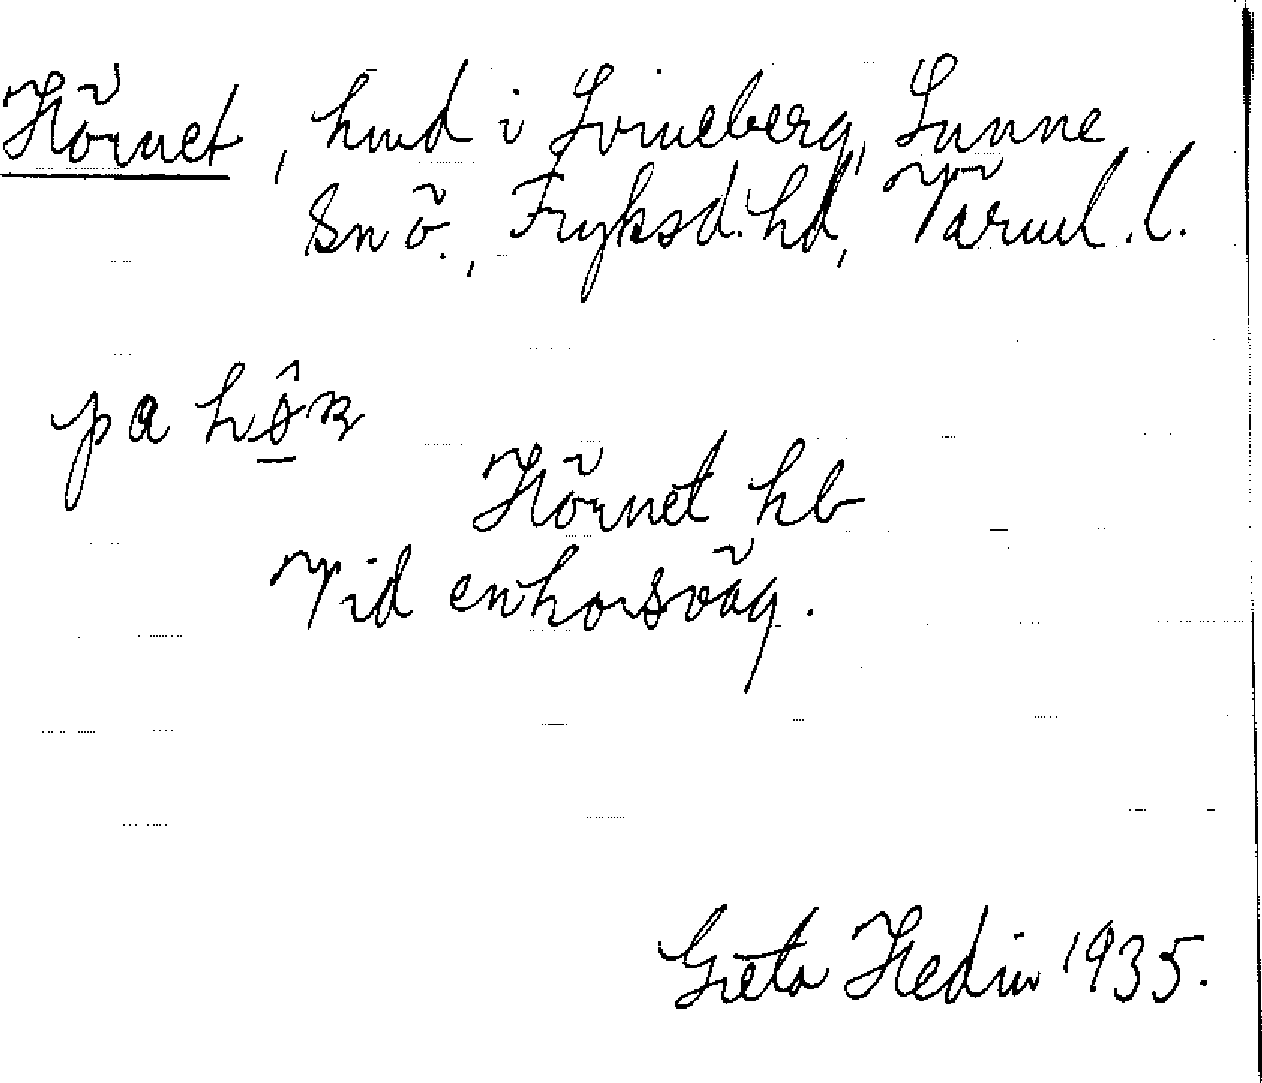 Hörnet, hmd i Lvineberg, Sunne
snö., Fryksd. hd, Värml. l.
pa hö̂ṇ
Hörnet hb
Vid enhorsväg.
Greta Hedin 1935.